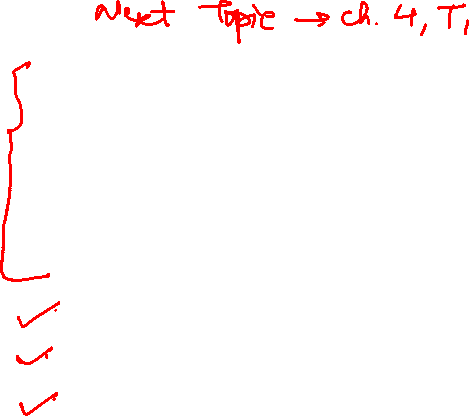 Next Topic → ch. 4, T1